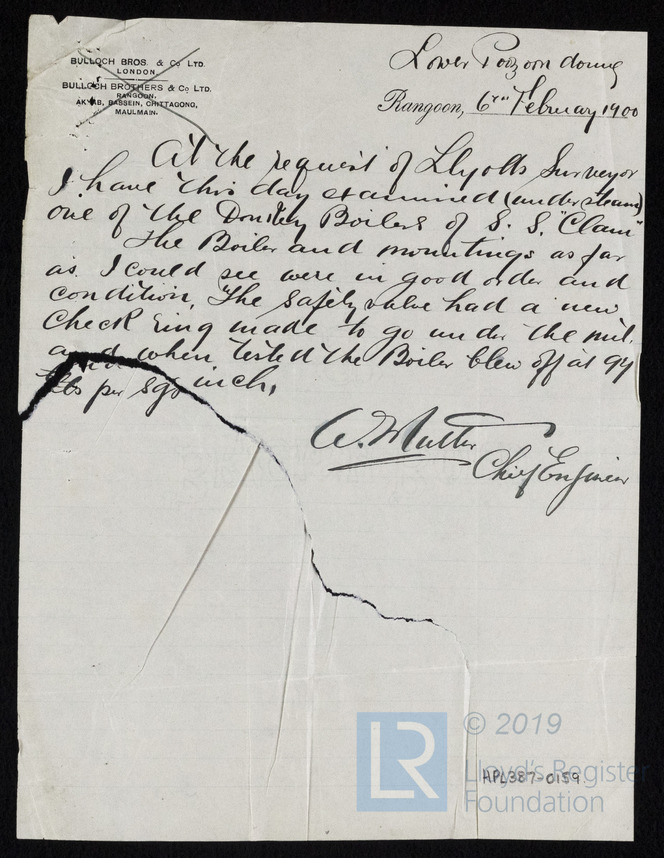 BULLOCH BROS. & Co LTD.
LONDON.
BULLOCH BROTHERS & Co LTD.
RANGOON,
AKYAB, BASSEIN, CHITTAGONG,
MAULMAIN.
Lower Poozoondoung
Rangoon, 6th February 1900
At the request of Llyods Surveyor
I have this day examined (under steam)
one of the Donkey Boilers of S. S. "Clam"
The Boiler and mountings as far
as I could see were in good order and
condition, The safety valve had a new
Check ring made to go under the nut.
and when tested the Boiler blew off at 94
lbs per sqr inch,
Chief Engineer
© 2019
Lloyd's Register
Foundation
HPL387-0159